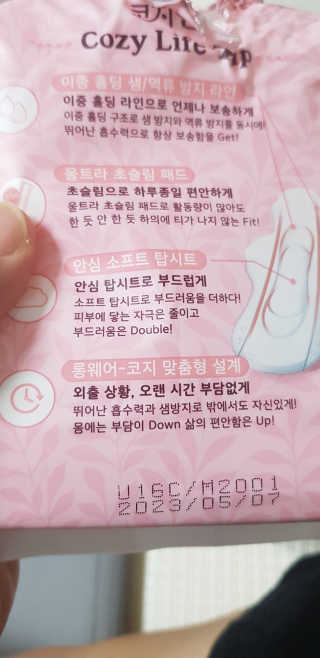 Cozy Life
이중 홀딩 샘/역류 방지 라인
이중 홀딩 라인으로 언제나 보송하게
이중 홀딩 구조로 샘 방지와 역류 방지를 동시에!
뛰어난 흡수력으로 항상 보송함을 Get!
울트라 초슬림 패드
초슬림으로 하루종일 편안하게
울트라 초슬림 패드로 활동량이 많아도
한 듯 안 한 듯 하의에 티가 나지 않는 Fit!
안심 소프트 탑시트
안심 탑시트로 부드럽게
소프트 탑시트로 부드러움을 더하다!
피부에 닿는 자극은 줄이고
부드러움은 Double!
롱웨어-코지 맞춤형 설계
외출 상황, 오랜 시간 부담없게
뛰어난 흡수력과 샘방지로 밖에서도 자신있게!
몸에는 부담이 Down 삶의 편안함은 Up!
U16C/M2001
2023/05/07